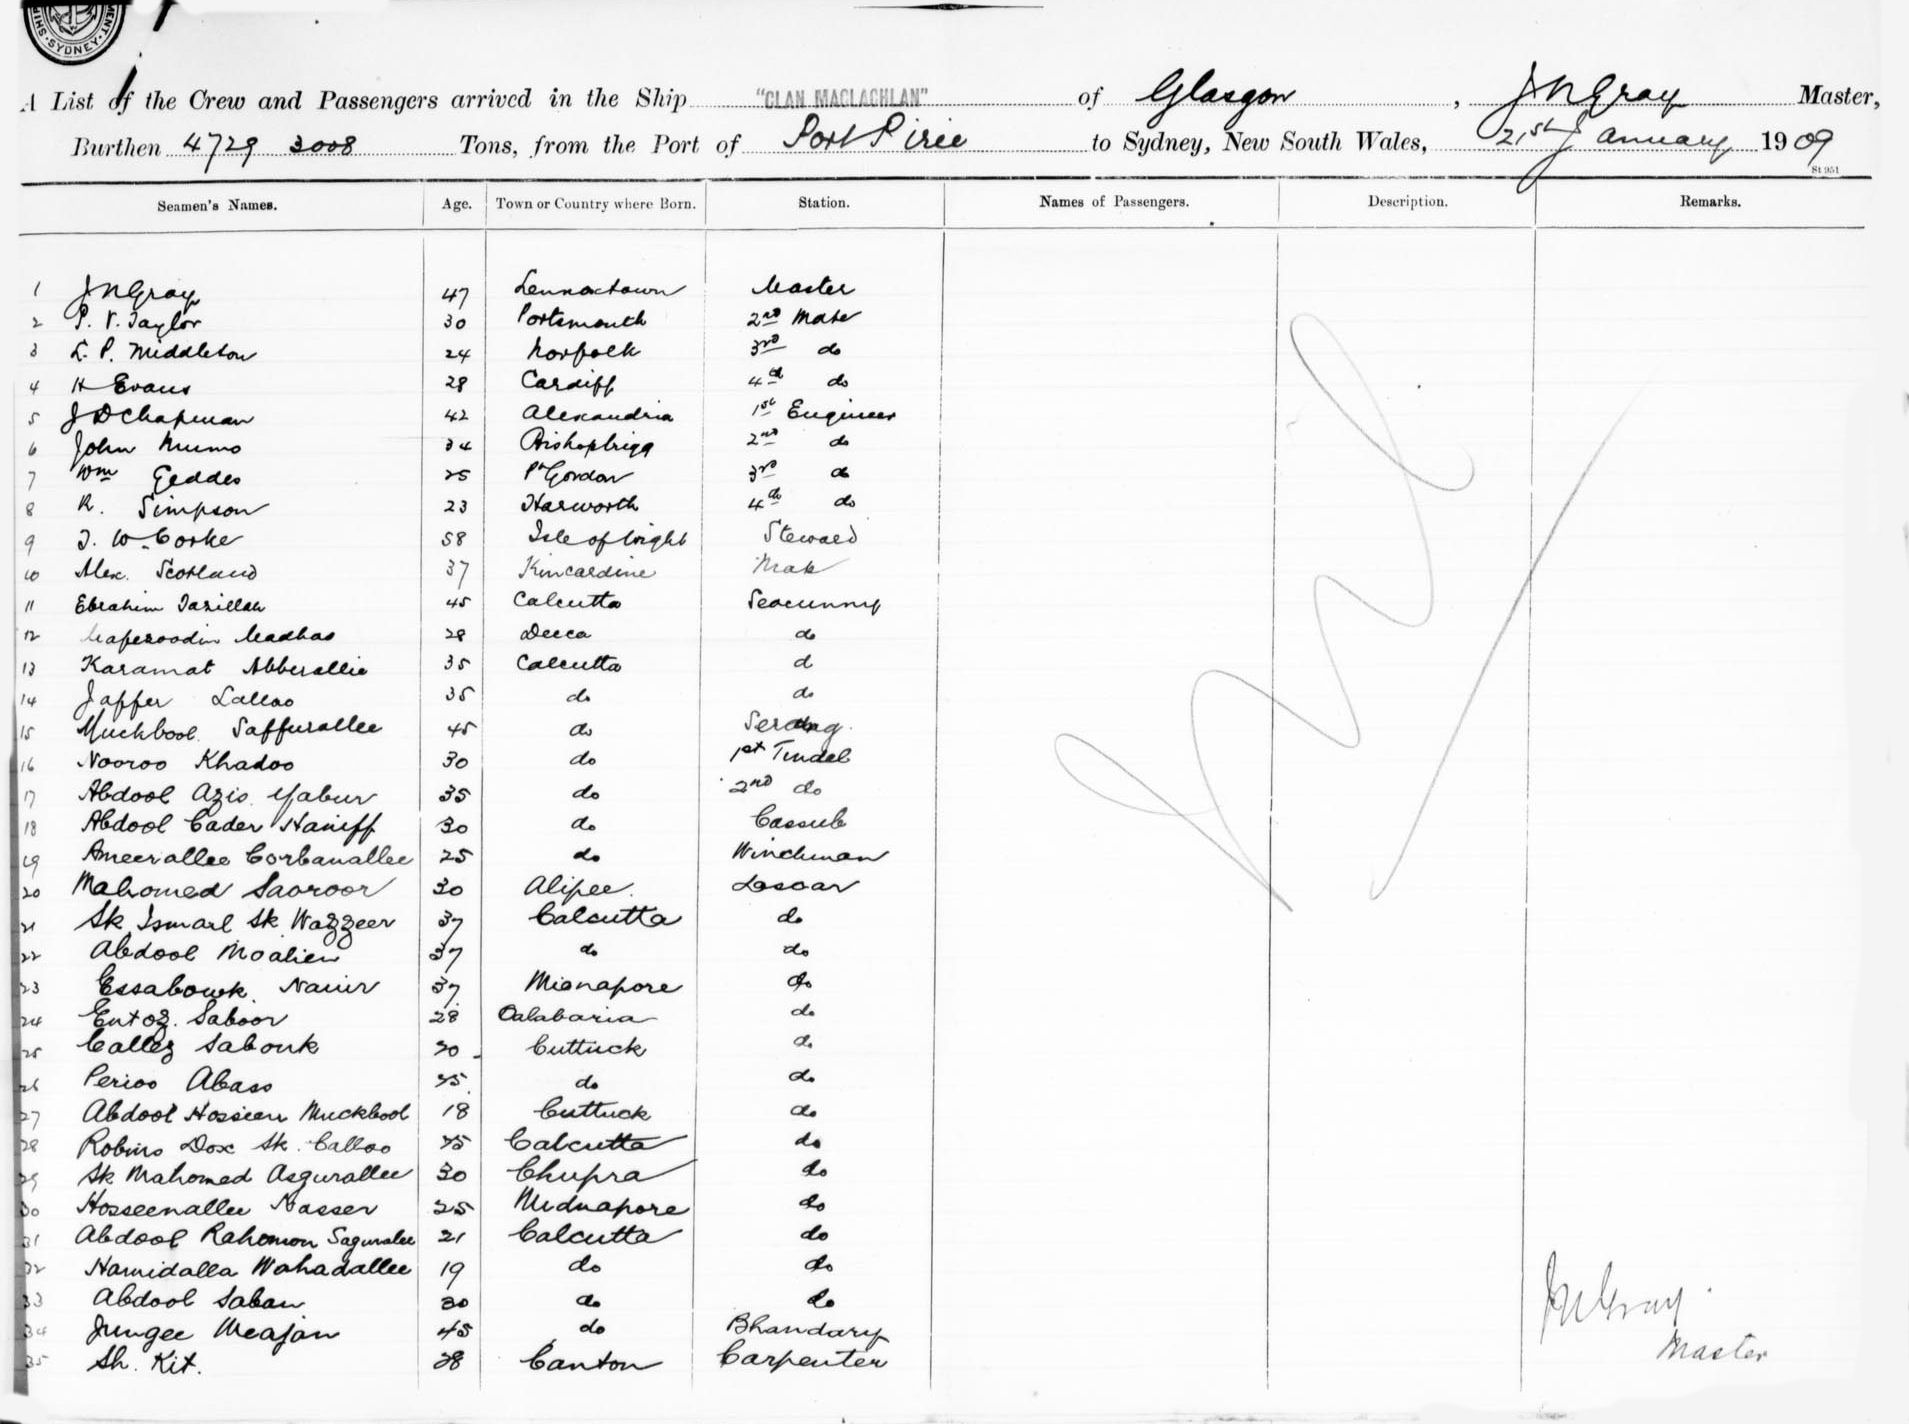 SYDNEY
A List of the Crew and Passengers arrived in the Ship "CLAN MACLACHLAN" of Glasgow, J N Gray Master,
Burthen 4729 3008 Tons, from the Port of Port Pirie to Sydney, New South Wales, 21st January 1909
St 951
Seamen's Names. Age. Town or Country where Born. Station. Names of Passengers. Description. Remarks.
1 J N Gray 47 Lennoxtown Master
2 P. V. Taylor 30 Portsmouth 2nd Mate
3 L. P. Middleton 24 Norfolk 3rd do
4 H Evans 28 Cardiff 4th do
5 J D Chapman 42 Alexandria 1st Engineer
6 John Munro 34 Bishopbrigg 2nd do
7 Wm Geddes 25 Pt Gordon 3rd do
8 R. Simpson 23 Harworth 4th do
9 T. W. Corke 58 Isle of Wight Steward
10 Alex. Scotland 37 Kincardine Mate
11 Ebrahim Tazillah 45 Calcutta Seacunny
12 Madhao 28 Decca do
13 Karamat Abberallie 35 Calcutta d
14 Jaffer Lalloo 35 do do
15 Muckbool Saffurallee 45 do Serang.
16 Nooroo Khadoo 30 do 1st Tindel
17 Abdool Azis Yabur 35 do 2nd do
18 Abdool Cader Haniff 30 do Cassub
19 Ameerallee Corbanallee 25 do Winchman
20 Mahomed Saoroor 30 Alipee. Lascar
21 Sk Ismael Sk Wazzeer 37 Calcutta do
22 Abdool Moalien 37 do do
23 Essabouk Nasir 37 Mianapore do
24 Saboor 28 Calabaria do
25 Callez Sabouk 30 Cuttuck do
26 Abass do do
27 Abdool Hossien Muckbool 18 Cuttuck do
28 Dox Sk. Calloo Calcutta do
29 Sk Mahomed Asgurallee 30 Chupra do
30 Hosseenallee Nasser 25 Midnapore do
31 Abdool Rahomon Sagurallee 21 Calcutta do
32 Hamidalla Wahadallee 19 do do
33 Abdool Soban 30 do do
34 Jungee Meajan 45 do Bhandary
35 Sh. Kit. 38 Canton Carpenter
Nil
J N Gray.
Master